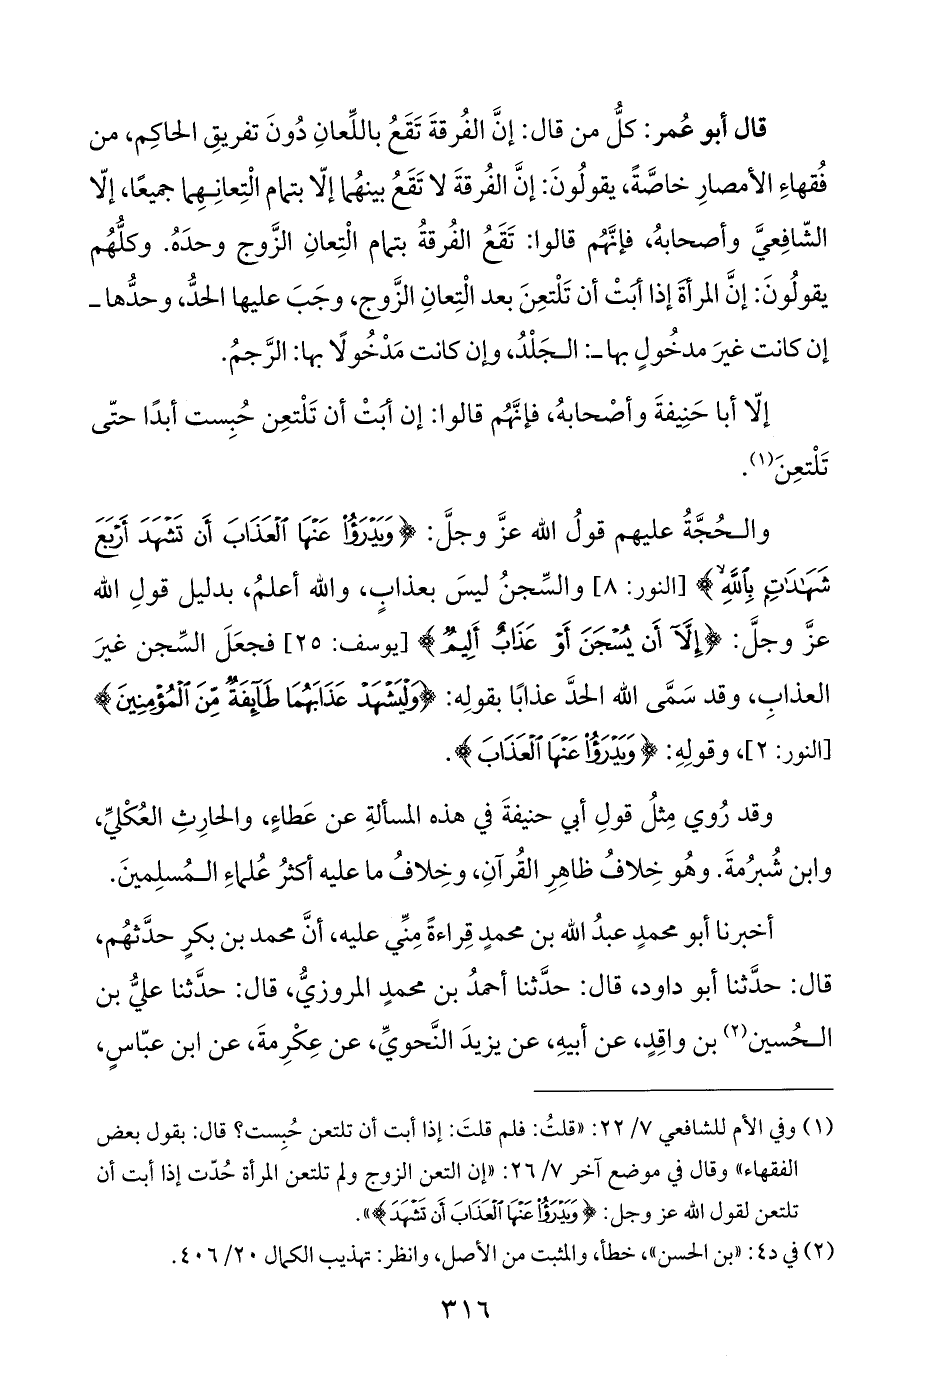 قال أبو عُمر: كلُّ من قال: إنَّ الفُرقةَ تَقَعُ باللِّعانِ دُونَ تفريقِ الحاكِم، من
فُقهاءِ الأمصارِ خاصَّةً، يقولُونَ: إنَّ الفُرقةَ لا تَقَعُ بينهُما إلّا بتمام الْتِعانِهِما جميعًا، إلّا
الشّافِعيَّ وأصحابهُ، فإنَّهُم قالوا: تَقَعُ الفُرقةُ بتمام الْتِعان الزَّوج وحدَهُ. وكلُّهُم
يقولُونَ: إنَّ المرأةَ إذا أبَتْ أن تَلْتعِنَ بعد الْتِعانِ الزَّوج، وجَبَ عليها الحدُّ، وحدُّها ـ
إن كانت غيرَ مدخُولٍ بها ـ: الـجَلْدُ، وإن كانت مَدْخُولًا بها: الرَّجمُ.
إلّا أبا حَنِيفةَ وأصْحابهُ، فإنَّهُم قالوا: إن أبَتْ أن تَلْتعِن حُبِست أبدًا حتّى
تَلْتعِنَ(١).
والـحُجَّةُ عليهم قولُ الله عزَّ وجلَّ: ﴿وَيَدْرَؤُا۟ عَنْهَا ٱلْعَذَابَ أَن تَشْهَدَ أَرْبَعَ
شَهَٰدَٰتٍۭ بِٱللَّهِ﴾ [النور: ٨] والسِّجنُ ليسَ بعذابٍ، والله أعلمُ، بدليل قولِ الله
عزَّ وجلَّ: ﴿إِلَّآ أَن يُسْجَنَ أَوْ عَذَابٌ أَلِيمٌ﴾ [يوسف: ٢٥] فجعَلَ السِّجن غيرَ
العذابِ، وقد سَمَّى الله الحدَّ عذابًا بقولِه: ﴿وَلْيَشْهَدْ عَذَابَهُمَا طَآئِفَةٌ مِّنَ ٱلْمُؤْمِنِينَ﴾
[النور: ٢]، وقولِهِ: ﴿وَيَدْرَؤُا۟ عَنْهَا ٱلْعَذَابَ﴾.
وقد رُوي مِثلُ قولِ أبي حنيفةَ في هذه المسألةِ عن عَطاءٍ، والحارِثِ العُكْليِّ،
وابن شُبرُمةَ. وهُو خِلافُ ظاهِرِ القُرآنِ، وخِلافُ ما عليه أكثرُ عُلماءِ الـمُسلِمينَ.
أخبرنا أبو محمدٍ عبدُ الله بن محمدٍ قِراءةً مِنِّي عليه، أنَّ محمد بن بكرٍ حدَّثهُم،
قال: حدَّثنا أبو داود، قال: حدَّثنا أحمدُ بن محمدٍ المروزيُّ، قال: حدَّثنا عليُّ بن
الـحُسين(٢) بن واقِدٍ، عن أبيهِ، عن يزيدَ النَّحويِّ، عن عِكْرِمةَ، عن ابن عبّاسٍ،
(١) وفي الأم للشافعي ٧/ ٢٢: «قلتُ: فلم قلتَ: إذا أبت أن تلتعن حُبِست؟ قال: بقول بعض
الفقهاء» وقال في موضع آخر ٧/ ٢٦: «إن التعن الزوج ولم تلتعن المرأة حُدّت إذا أبت أن
تلتعن لقول الله عز وجل: ﴿وَيَدْرَؤُا۟ عَنْهَا ٱلْعَذَابَ أَن تَشْهَدَ﴾».
(٢) في د٤: «بن الحسن»، خطأ، والمثبت من الأصل، وانظر: تهذيب الكمال ٢٠/ ٤٠٦.
٣١٦